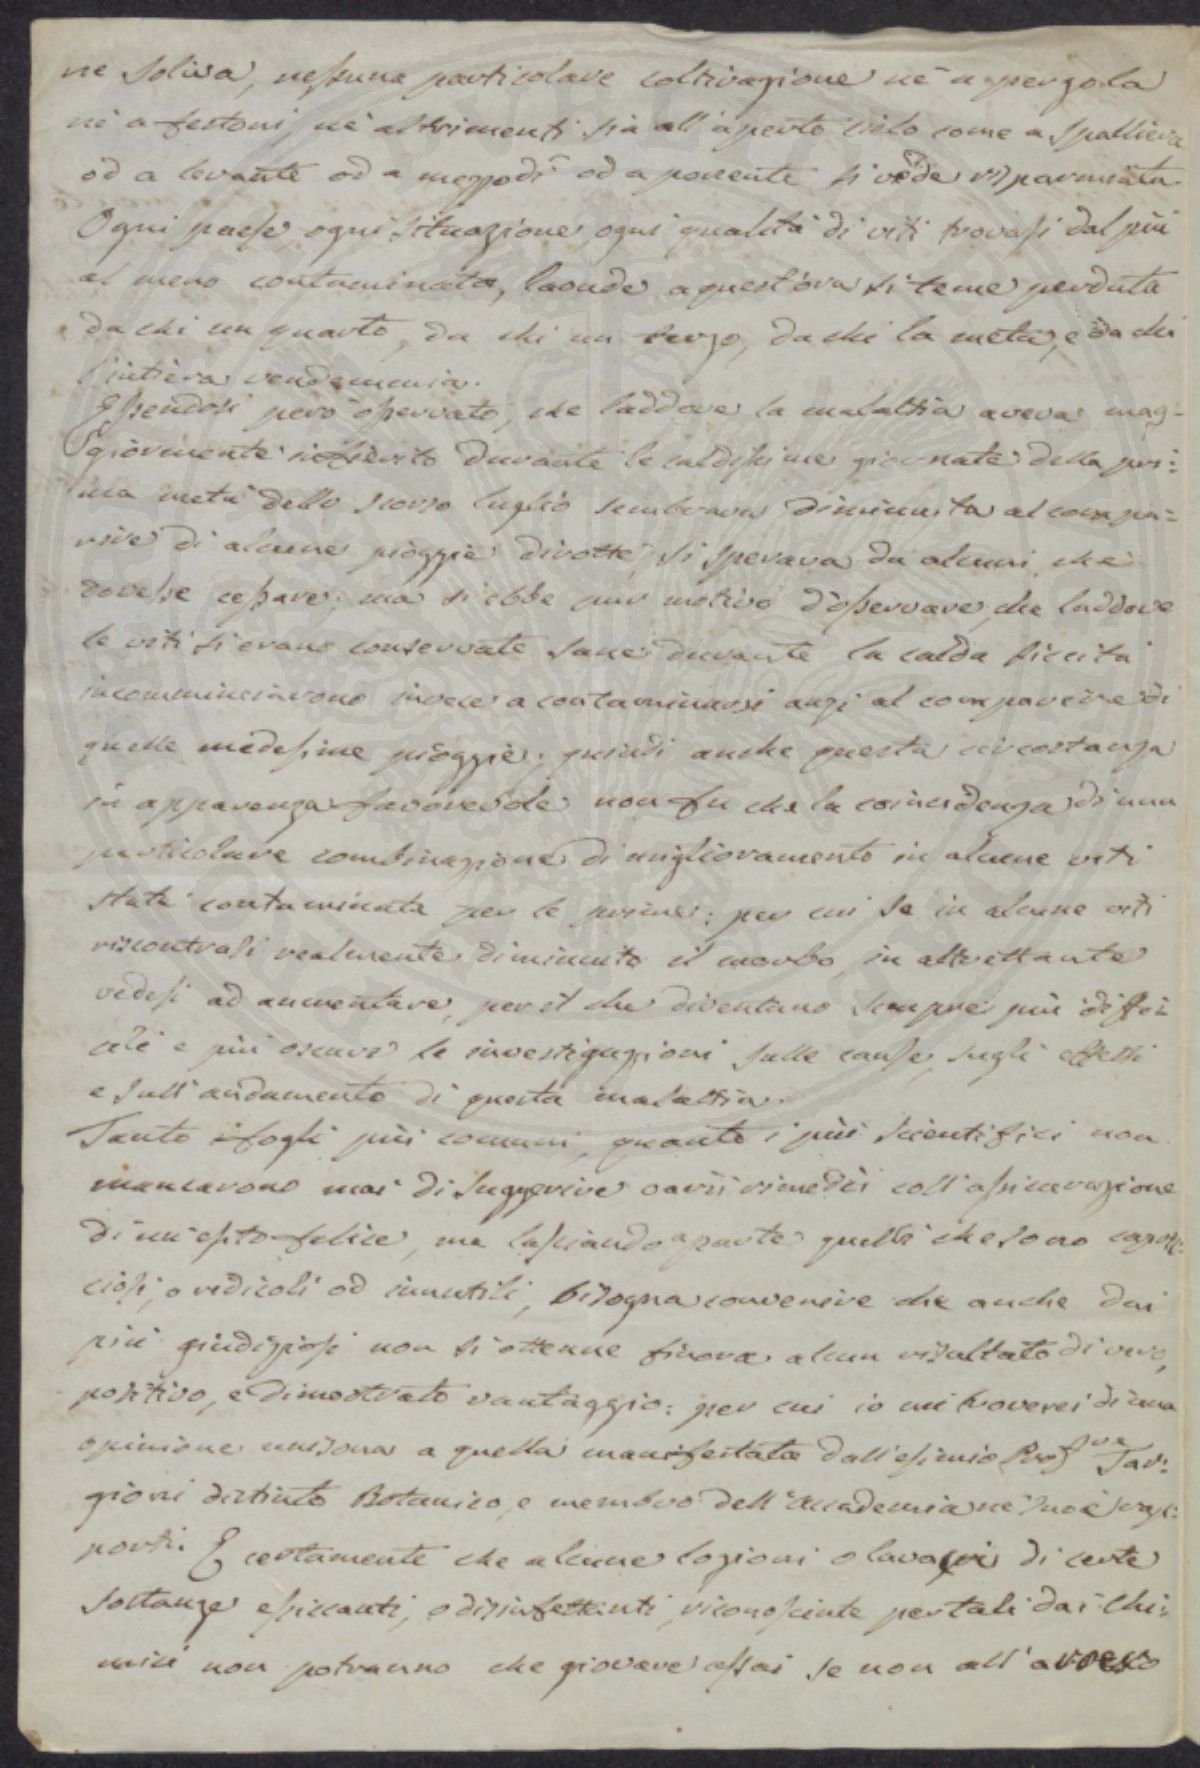 ne soliva, nessuna particolare coltivazione nè a pergola
nè a festoni, nè altrimenti sia all'aperto cielo come a spalliera
od a levante od a mezzodì od a ponente si vede risparmiata
Ogni paese, ogni situazione, ogni qualità di viti trovasi dal più
al meno contaminata, laonde a quest'ora si teme perduta
da chi un quarto, da chi un terzo, da chi la metà, e da chi
l'intiera vendemmia.
Essendosi però osservato, che laddove la malattia aveva mag-
giormente inferito durante le caldissime giornate della pri-
ma metà dello scorso luglio sembrava diminuita al compa-
rire di alcune pioggie dirotte, si sperava da alcuni che
dovesse cessare; ma si ebbe pur motivo d'osservare, che laddove
le viti si erano conservate sane durante la calda siccità
incomminciarono invece a contaminarsi anzi al comparire di
quelle medesime pioggie; quindi anche questa circostanza
in apparenza favorevole non fu che la coincidenza di una
particolare combinazione di miglioramento in alcune viti
state contaminate per le prime: per cui se in alcune viti
riscontrasi realmente diminuito il morbo in altrettante
vedesi ad aumentare, per il che diventano sempre più diffi-
cili e più oscure le investigazioni sulle cause, sugli effetti
e sull'andamento di questa malattia.
Tanto i fogli più comuni, quanto i più scientifici non
mancarono mai di suggerire varii rimedii coll'assicurazione
di un esito felice, ma lasciando a parte quelli che sono capric-
ciosi, o ridicoli od inutili, bisogna convenire che anche dai
più giudiziosi non si ottenne finora alcun risultato di vero,
positivo, e dimostrato vantaggio: per cui io mi troverei di una
opinione unisona a quella manifestata dall'esimio Prof.re Tar-
gioni distinto Botanico, e membro dell'Accademia ne' suoi rap-
porti. E certamente che alcune lozioni o lavacri di certe
sostanze essiccanti, o disinfettanti, riconosciute per tali dai Chi-
mici non potranno che giovare assai se non all'arresto